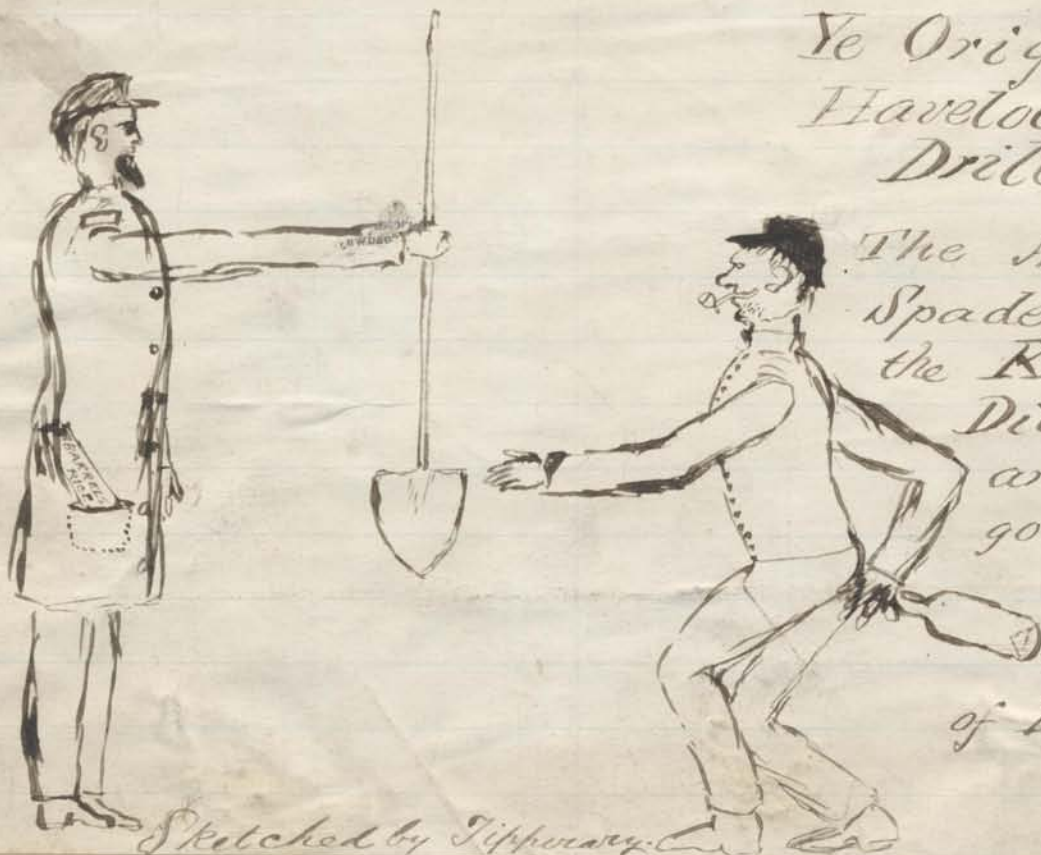 Ye Orig
Haveloc
Drill
The
Spade
the K
Di
go
of
BARREL
RICE
Sketched by Tipperary.